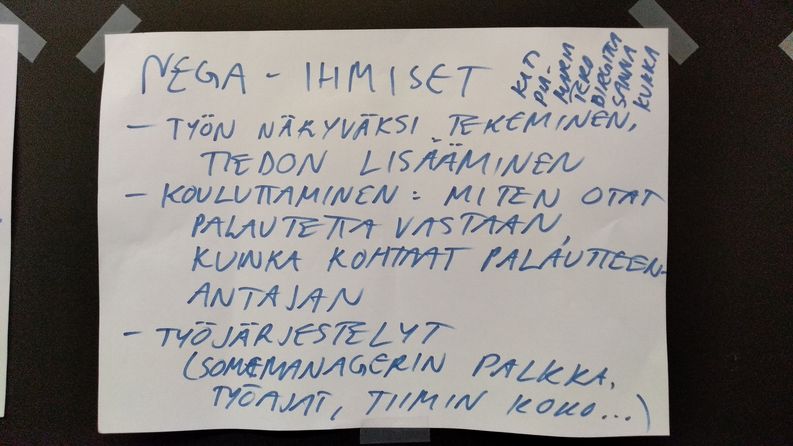 NEGA - IHMISET
KATI
PIA-
TERO
BIRGITTA
SANNA
KUKKA
- TYÖN NÄKYVÄKSI TEKEMINEN,
TIEDON LISÄÄMINEN
- KOULUTTAMINEN: MITEN OTAT
PALAUTETTA VASTAAN,
KUINKA KOHTAAT PALAUTTEEN-
ANTAJAN
- TYÖJÄRJESTELYT
(SOMEMANAGERIN PALKKA,
TYÖAJAT, TIIMIN KOKO...)